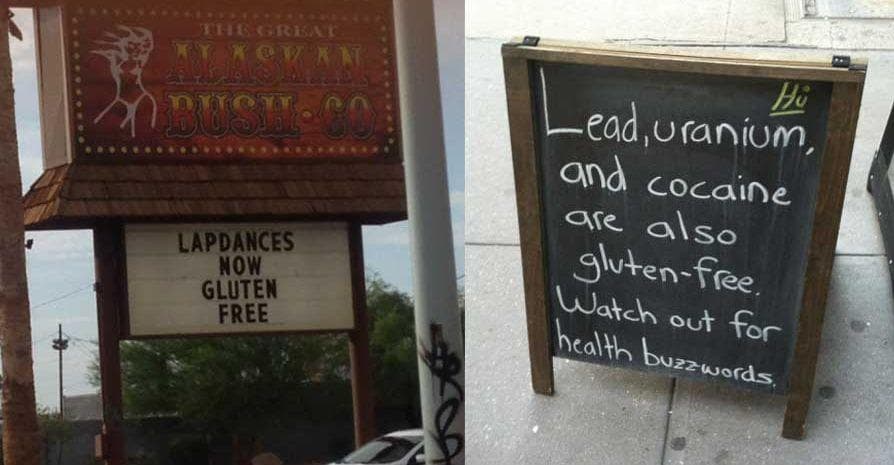 THE GREAT
ALASKAN
BUSH·CO
LAPDANCES
NOW
GLUTEN
FREE
Hi
Lead, uranium,
and cocaine
are also
gluten-free.
Watch out for
health buzzwords.